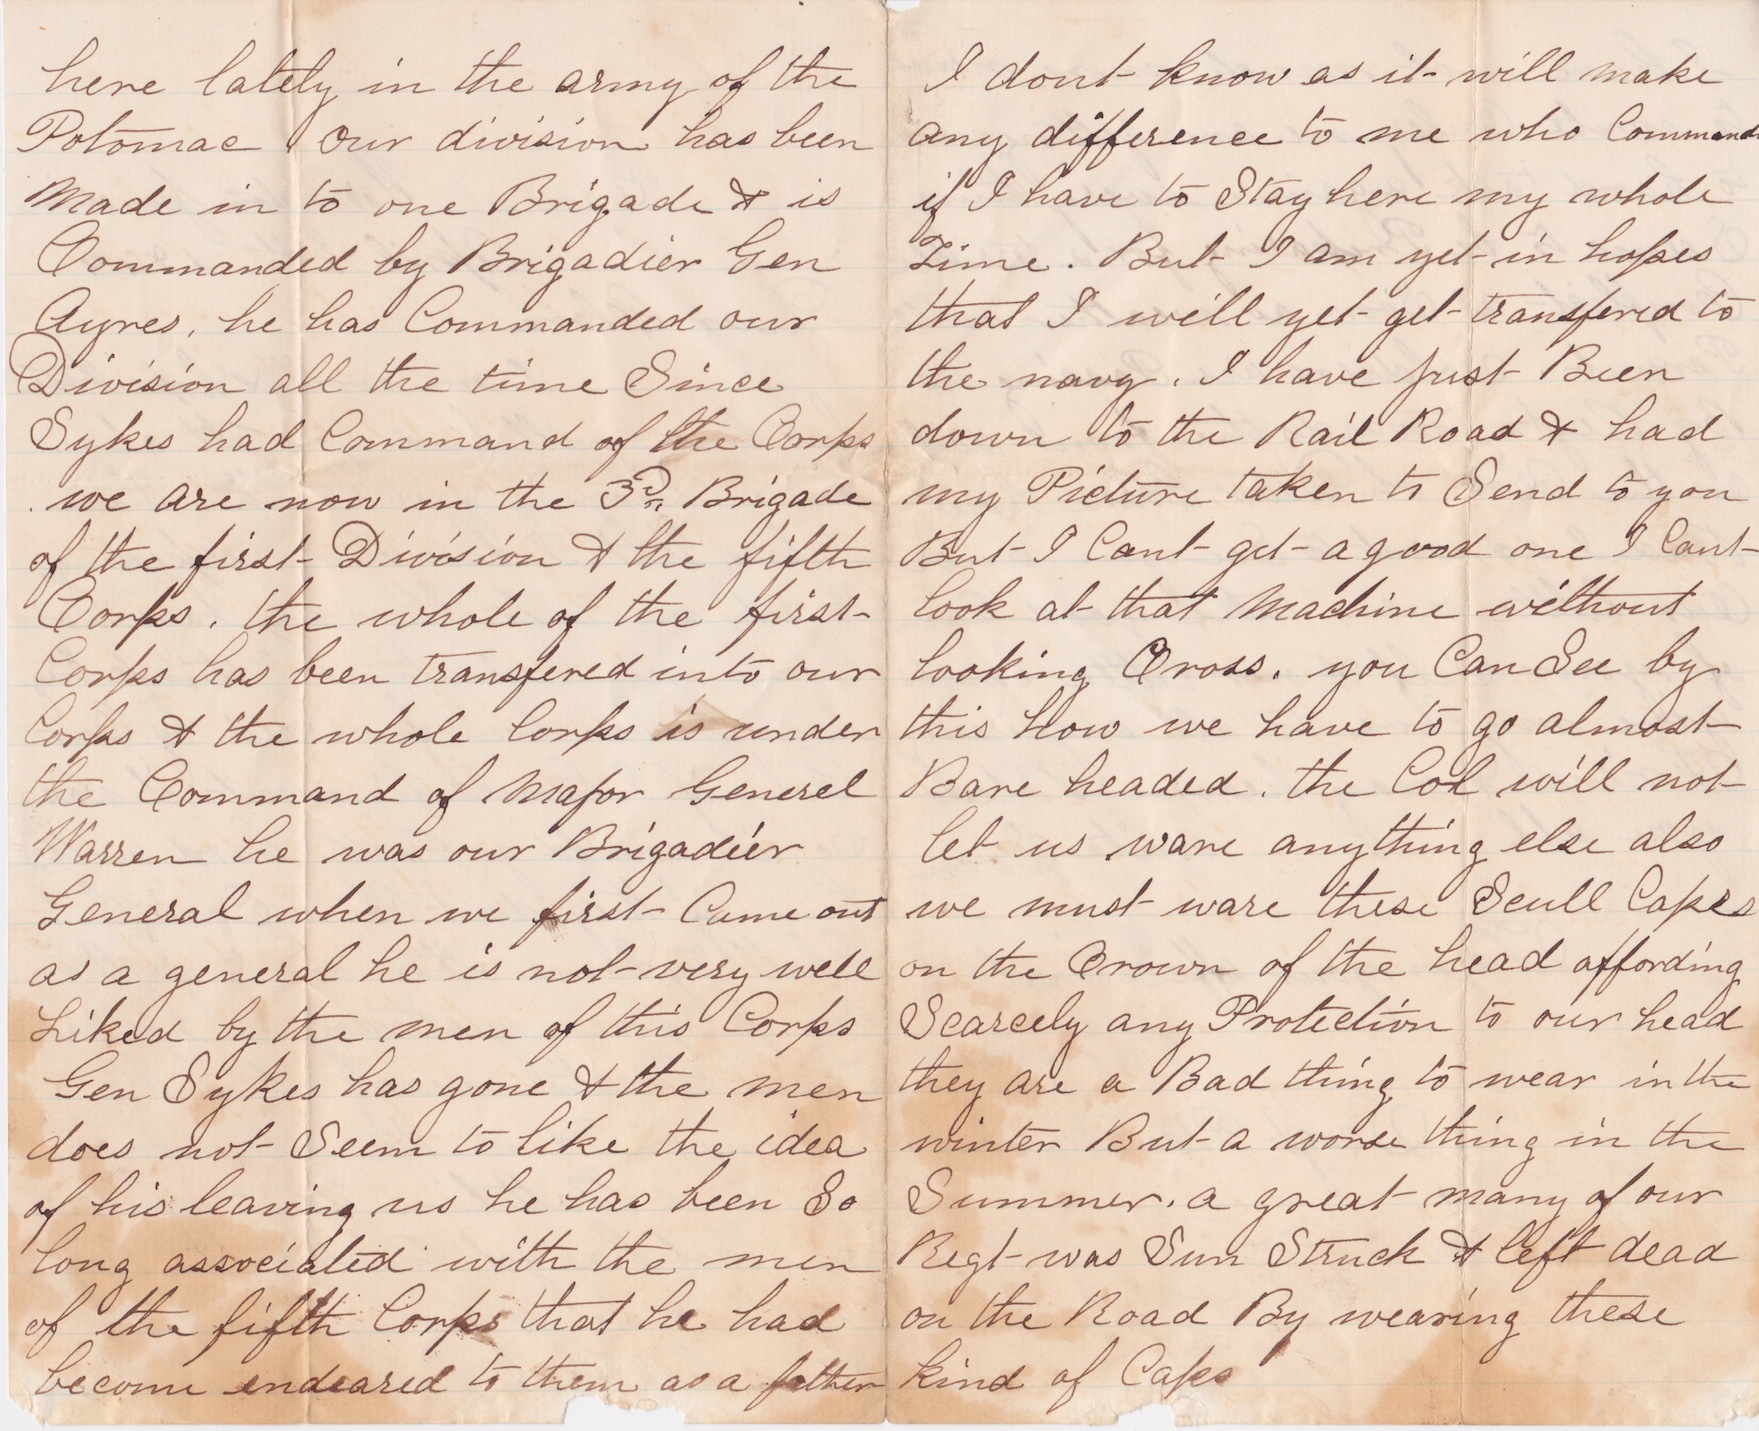 here lately in the army of the
Potomac Our division has been
Made in to one Brigade & is
Commanded by Brigadier Gen
Ayres, he has Commanded our
Division all the time Since
Sykes had Command of the Corps
we are now in the 3rd Brigade
of the first Division & the fifth
Corps. the whole of the first
Corps has been transfered into our
Corps & the whole Corps is under
the Command of Major Generel
Warren he was our Brigadier
General when we first Came out
as a general he is not very well
Liked by the men of this Corps
Gen Sykes has gone & the men
does not Seem to like the idea
of his leaving us he has been So
long associated with the men
of the fifth Corps that he had
become endeared to them as a father
I dont know as it will make
any difference to me who Commands
if I have to Stay here my whole
Time. But I am yet in hopes
that I will yet get transfered to
the navy. I have just Been
down to the Rail Road & had
my Picture taken to Send to you
But I Cant get a good one I Cant
look at that Machine without
looking Cross. you Can See by
this how we have to go almost
Bare headed. the Col will not
let us ware anything else also
we must ware these Scull Capes
on the Crown of the head affording
Scarcely any Protection to our head
they are a Bad thing to wear in the
winter But a worse thing in the
Summer. a great many of our
Regt was Sun Struck & left dead
on the Road By wearing these
kind of Caps